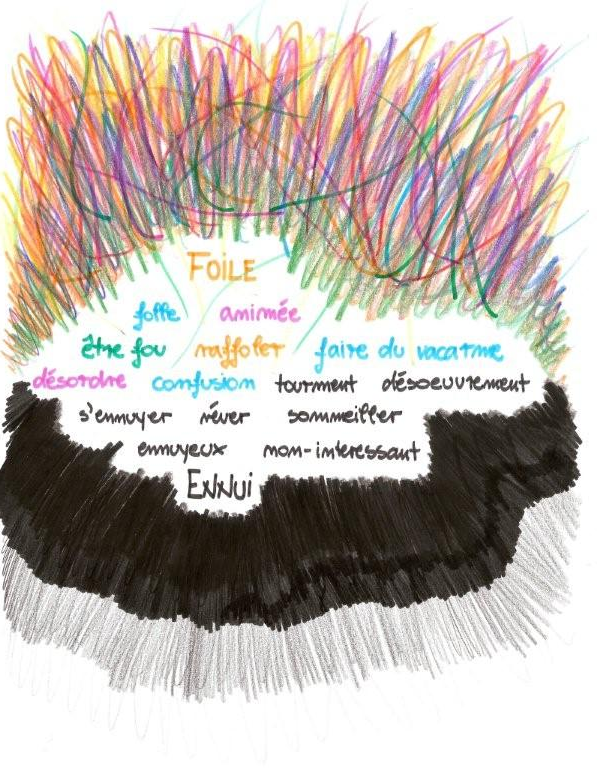 FOILE
folle animée
être fou raffoler faire du vacarme
désordre confusion tourment désoeuvrement
s'ennuyer rêver sommeiller
ennuyeux non-interessant
ENNUi